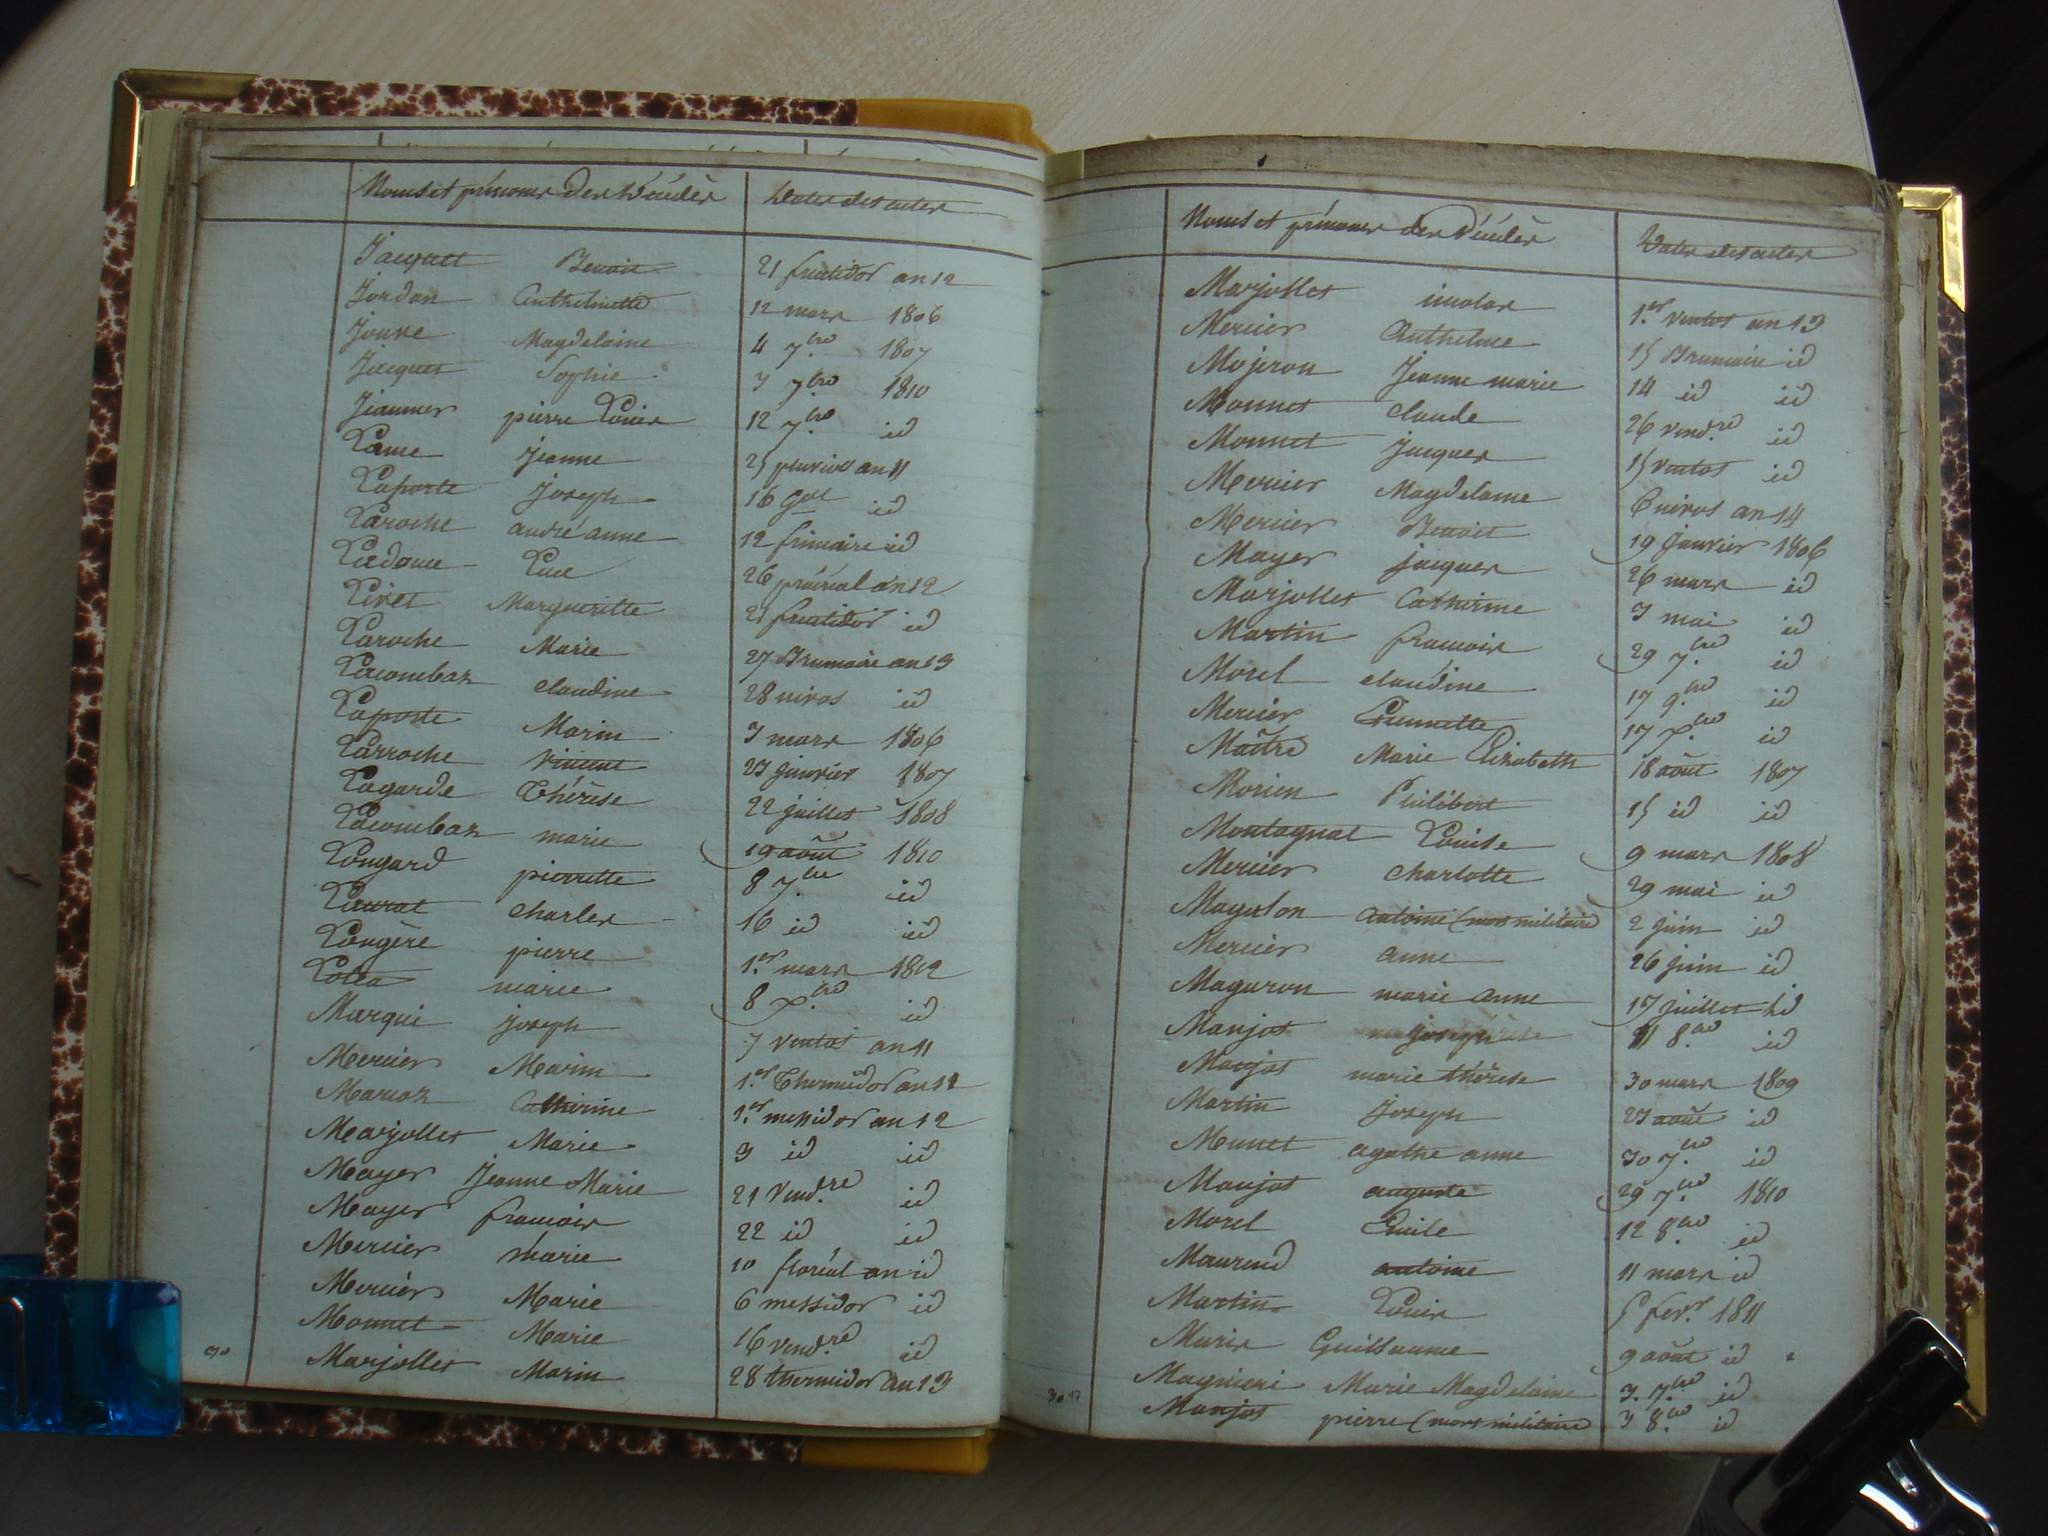 Noms et prénoms des décédés Dates des actes
Jacquet Benoit 21 fructidor an 12
Jordan Anthelmette 12 mars 1806
Jouve Magdelaine 4 7.bre 1807
Jacquet Sophie 3 7.bre 1810
pierre Louis 12 7.bre id
Jeanne 25 pluviose an 11
Laporte Joseph 16 id
Laroche andré anne 12 frimaire id
Luce 26 prairial an 12
Livet Margueritte 21 fructidor id
Laroche Marie 27 Brumaire an 13
Lacombaz claudine 28 nivos id
Laporte Marin 3 mars 1806
Larroche vincent 23 janvier 1807
Lagarde Thérèse 22 juillet 1808
Lacombaz marie 19 août 1810
Longard pierrette 8 7.bre id
Laurat charles 16 id id
Longère pierre 1.er mars 1812
marie 8 id
Marqui joseph 7 ventos an 11
Mercier Marin 1.er Thermidor an 12
Marioz Catherine 1.er messidor an 12
Marjollet Marie 3 id id
Mayer Jeanne Marie 21 Vend.re id
Mayer francois 22 id id
Mercier marie 10 floréal an id
Mercier Marie 6 messidor id
Monnet Marie 16 vend.re id
Marjollet Marin 28 thermidor an 13
Noms et prénoms des décédés Dates des actes
Marjollet nicolas 1.er ventos an 13
Mercier Anthelme 15 Brumaire id
Mojeron Jeanne marie 14 id id
Monnet claude 26 vend.re id
Monnet jacques 15 ventos id
Mercier Magdelaine 6 nivos an 14
Mercier Benoit 19 janvier 1806
Mayer jacques 26 mars id
Marjollet Catherine 3 mai id
Martin francois 29 7.bre id
Morel claudine 17 9.bre id
Mercier 17 id
Maître Marie Elizabeth 18 août 1807
Morien Philibert 15 id id
Montagnat Louise 9 mars 1808
Mercier charlotte 29 mai id
Magalon antoine (mort militaire 2 juin id
Mercier anne 26 juin id
Maguron marie anne 17 juillet id
Manjot 11 8.bre id
Manjot marie thérèse 30 mars 1809
Martin joseph 23 août id
Munet agathe anne 30 7.bre id
Manjot auguste 29 7.bre 1810
Morel Emile 12 8.bre id
Maurend antoine 11 mars id
Martin Louis 5 fev.r 1811
Guillaume 9 août id
Marie Magdelaine 3. 7.bre id
Manjot pierre (mort militaire 3 8.bre id